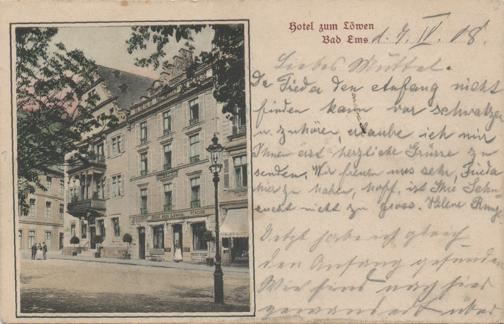 Hotel zum Löwen
Bad Ems d. 7. IV. 08.
Liebes Muttel.
Da Frieda den Anfang nicht
finden kann vor schwatzen
u. zuhören erlaube ich mir
Ihnen erst herzliche Grüsse zu
senden. Wir freuen uns sehr, Frieda
hier zu haben, hoff. ist Ihre Sehn-
sucht nicht zu gross. Valerie
Jetzt habe ich gleich
den Anfang gefunden
Wir sind nach hier
gewandert